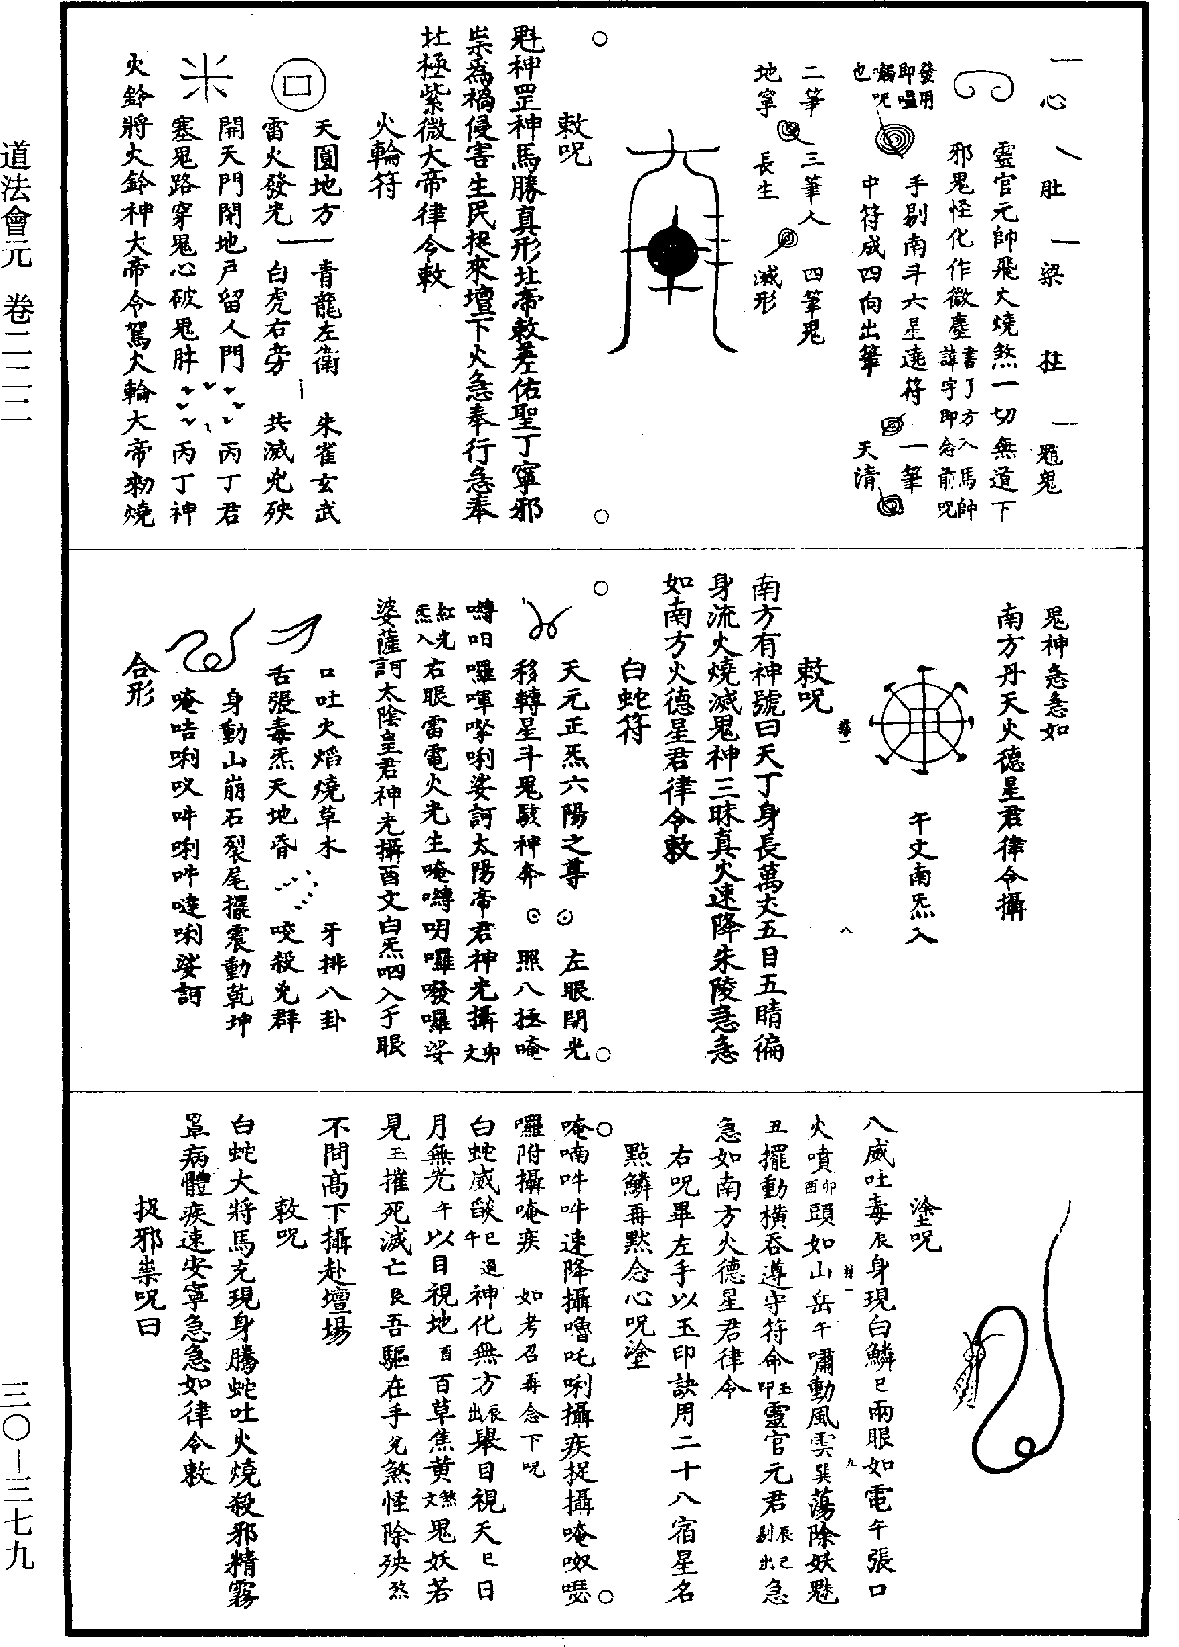 道法會元 卷二二二
三〇—三七九
一心 丶肚 一梁 拄 一鬼
靈官元帥飛火燒煞一切無道下
邪鬼怪化作微塵書了方入馬帥諱字即念前呪
手剔南斗六星遶符 一筆
中符成四向出筆 天清
發用即嘿觸呪也
二筆 三筆人 四筆鬼
地寧 長生 滅形
敕呪
魁神罡神馬勝真形北帝敕差佑聖丁寧邪
祟為禍侵害生民捉來壇下火急奉行急奉
北極紫微大帝律令敕
火輪符
天圓地方 青龍左衛 朱雀玄武
雷火發光 白虎右旁 共滅兇殃
開天門閉地戶留人門 丙丁君
塞鬼路穿鬼心破鬼肚 丙丁神
火鈴將火鈴神大帝令駕火輪大帝勑燒
鬼神急急如
南方丹天火德星君律令攝
午文南炁入
敕呪
南方有神號曰天丁身長萬丈五目五睛徧
身流火燒滅鬼神三昧真火速降朱陵急急
如南方火德星君律令敕
白蛇符
天元正炁六陽之尊 左眼閉光
移轉星斗鬼駭神奔 照八極唵
嚩吅囉㗲㘑唎娑訶太陽帝君神光攝卯文
紅光炁入右眼雷電火光生唵嚩明囉㗶囉娑
婆薩訶太陰皇君神光攝酉文白炁呬入于眼
口吐火焰燒草木 牙排八卦
舌張毒炁天地昏 咬殺兇群
身動山崩石裂尾擺震動乾坤
唵咭唎㕭吽唎吽噠唎娑訶
合形
塗呪
八威吐毒辰身現白鱗巳兩眼如電午張口
火噴卯酉頭如山岳午嘯動風雲巽蕩除妖魅
丑擺動橫吞遵守符命玉印靈官元君辰巳剔出急
急如南方火德星君律令
右呪畢左手以玉印訣用二十八宿星名
點鱗再默念心呪塗
唵喃吽吽速降攝嚕吒唎攝疾捉攝唵呶㗭
囉附攝唵疾 如考召再念下呪
白蛇威燄巳午通神化無方辰出舉目視天巳日
月無光午以目視地酉百草焦黃煞文鬼妖若
見玉摧死滅亡艮吾驅在手兌煞怪除殃煞
不問高下攝赴壇場
敕呪
白蛇大將馬充現身騰蛇吐火燒殺邪精霧
罩病體疾速安寧急急如律令敕
捉邪祟呪曰